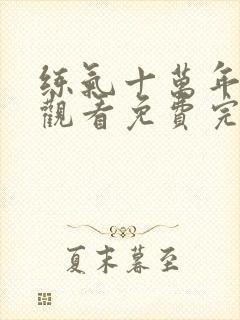 练氣十萬年
觀看免費完
夏末暮至